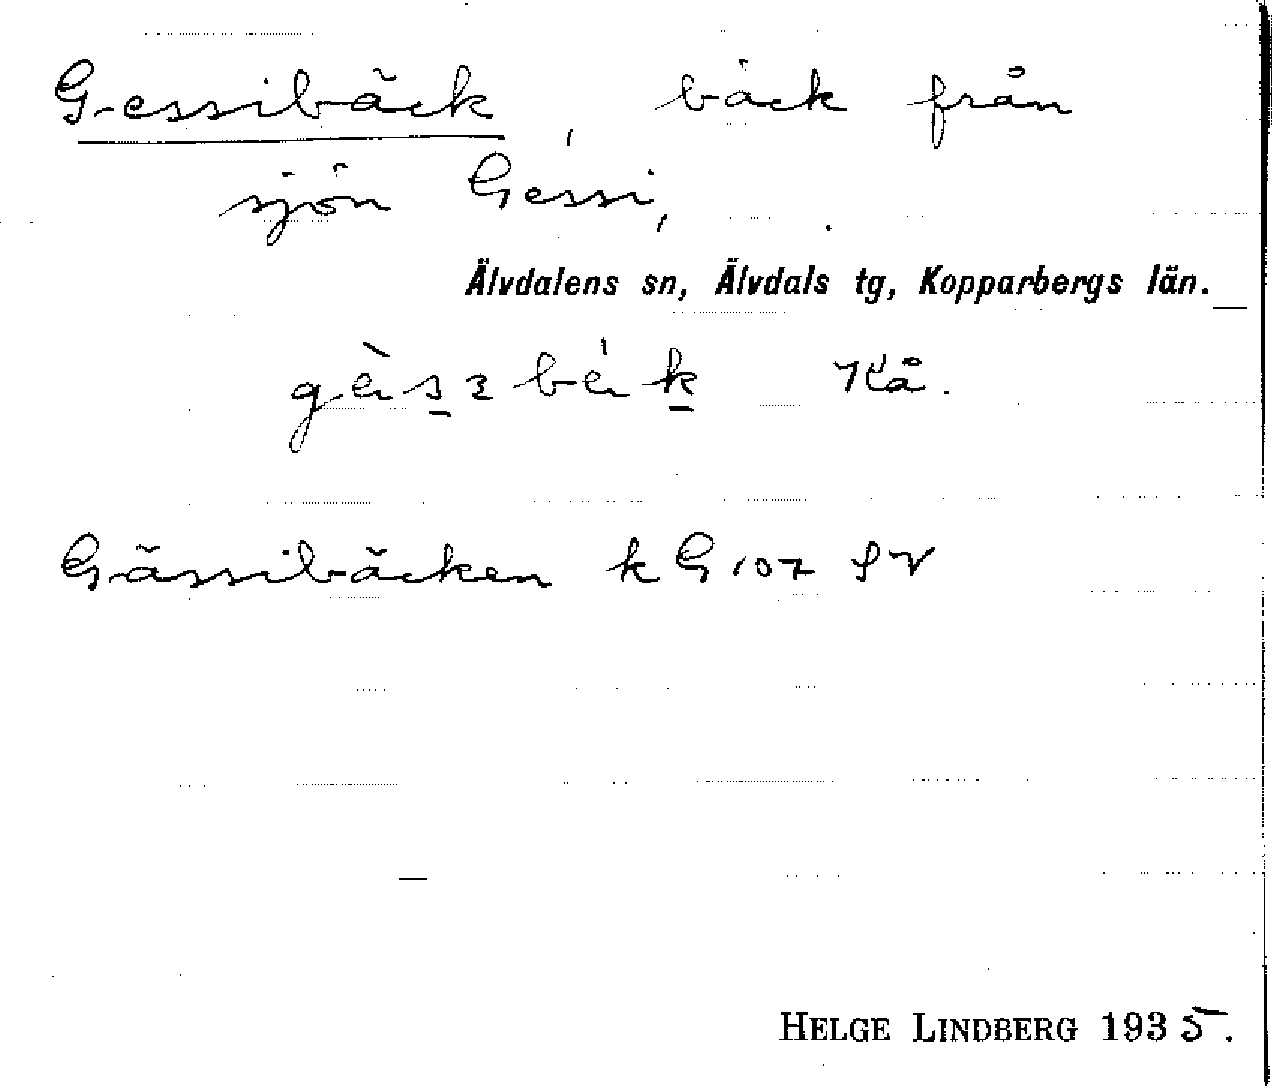 Gessibäck, bäck från
sjön Gessi,
Älvdalens sn, Älvdals tg, Kopparbergs län.
Kå.
Gässibäcken k G 107 SV
HELGE LINDBERG 1935.